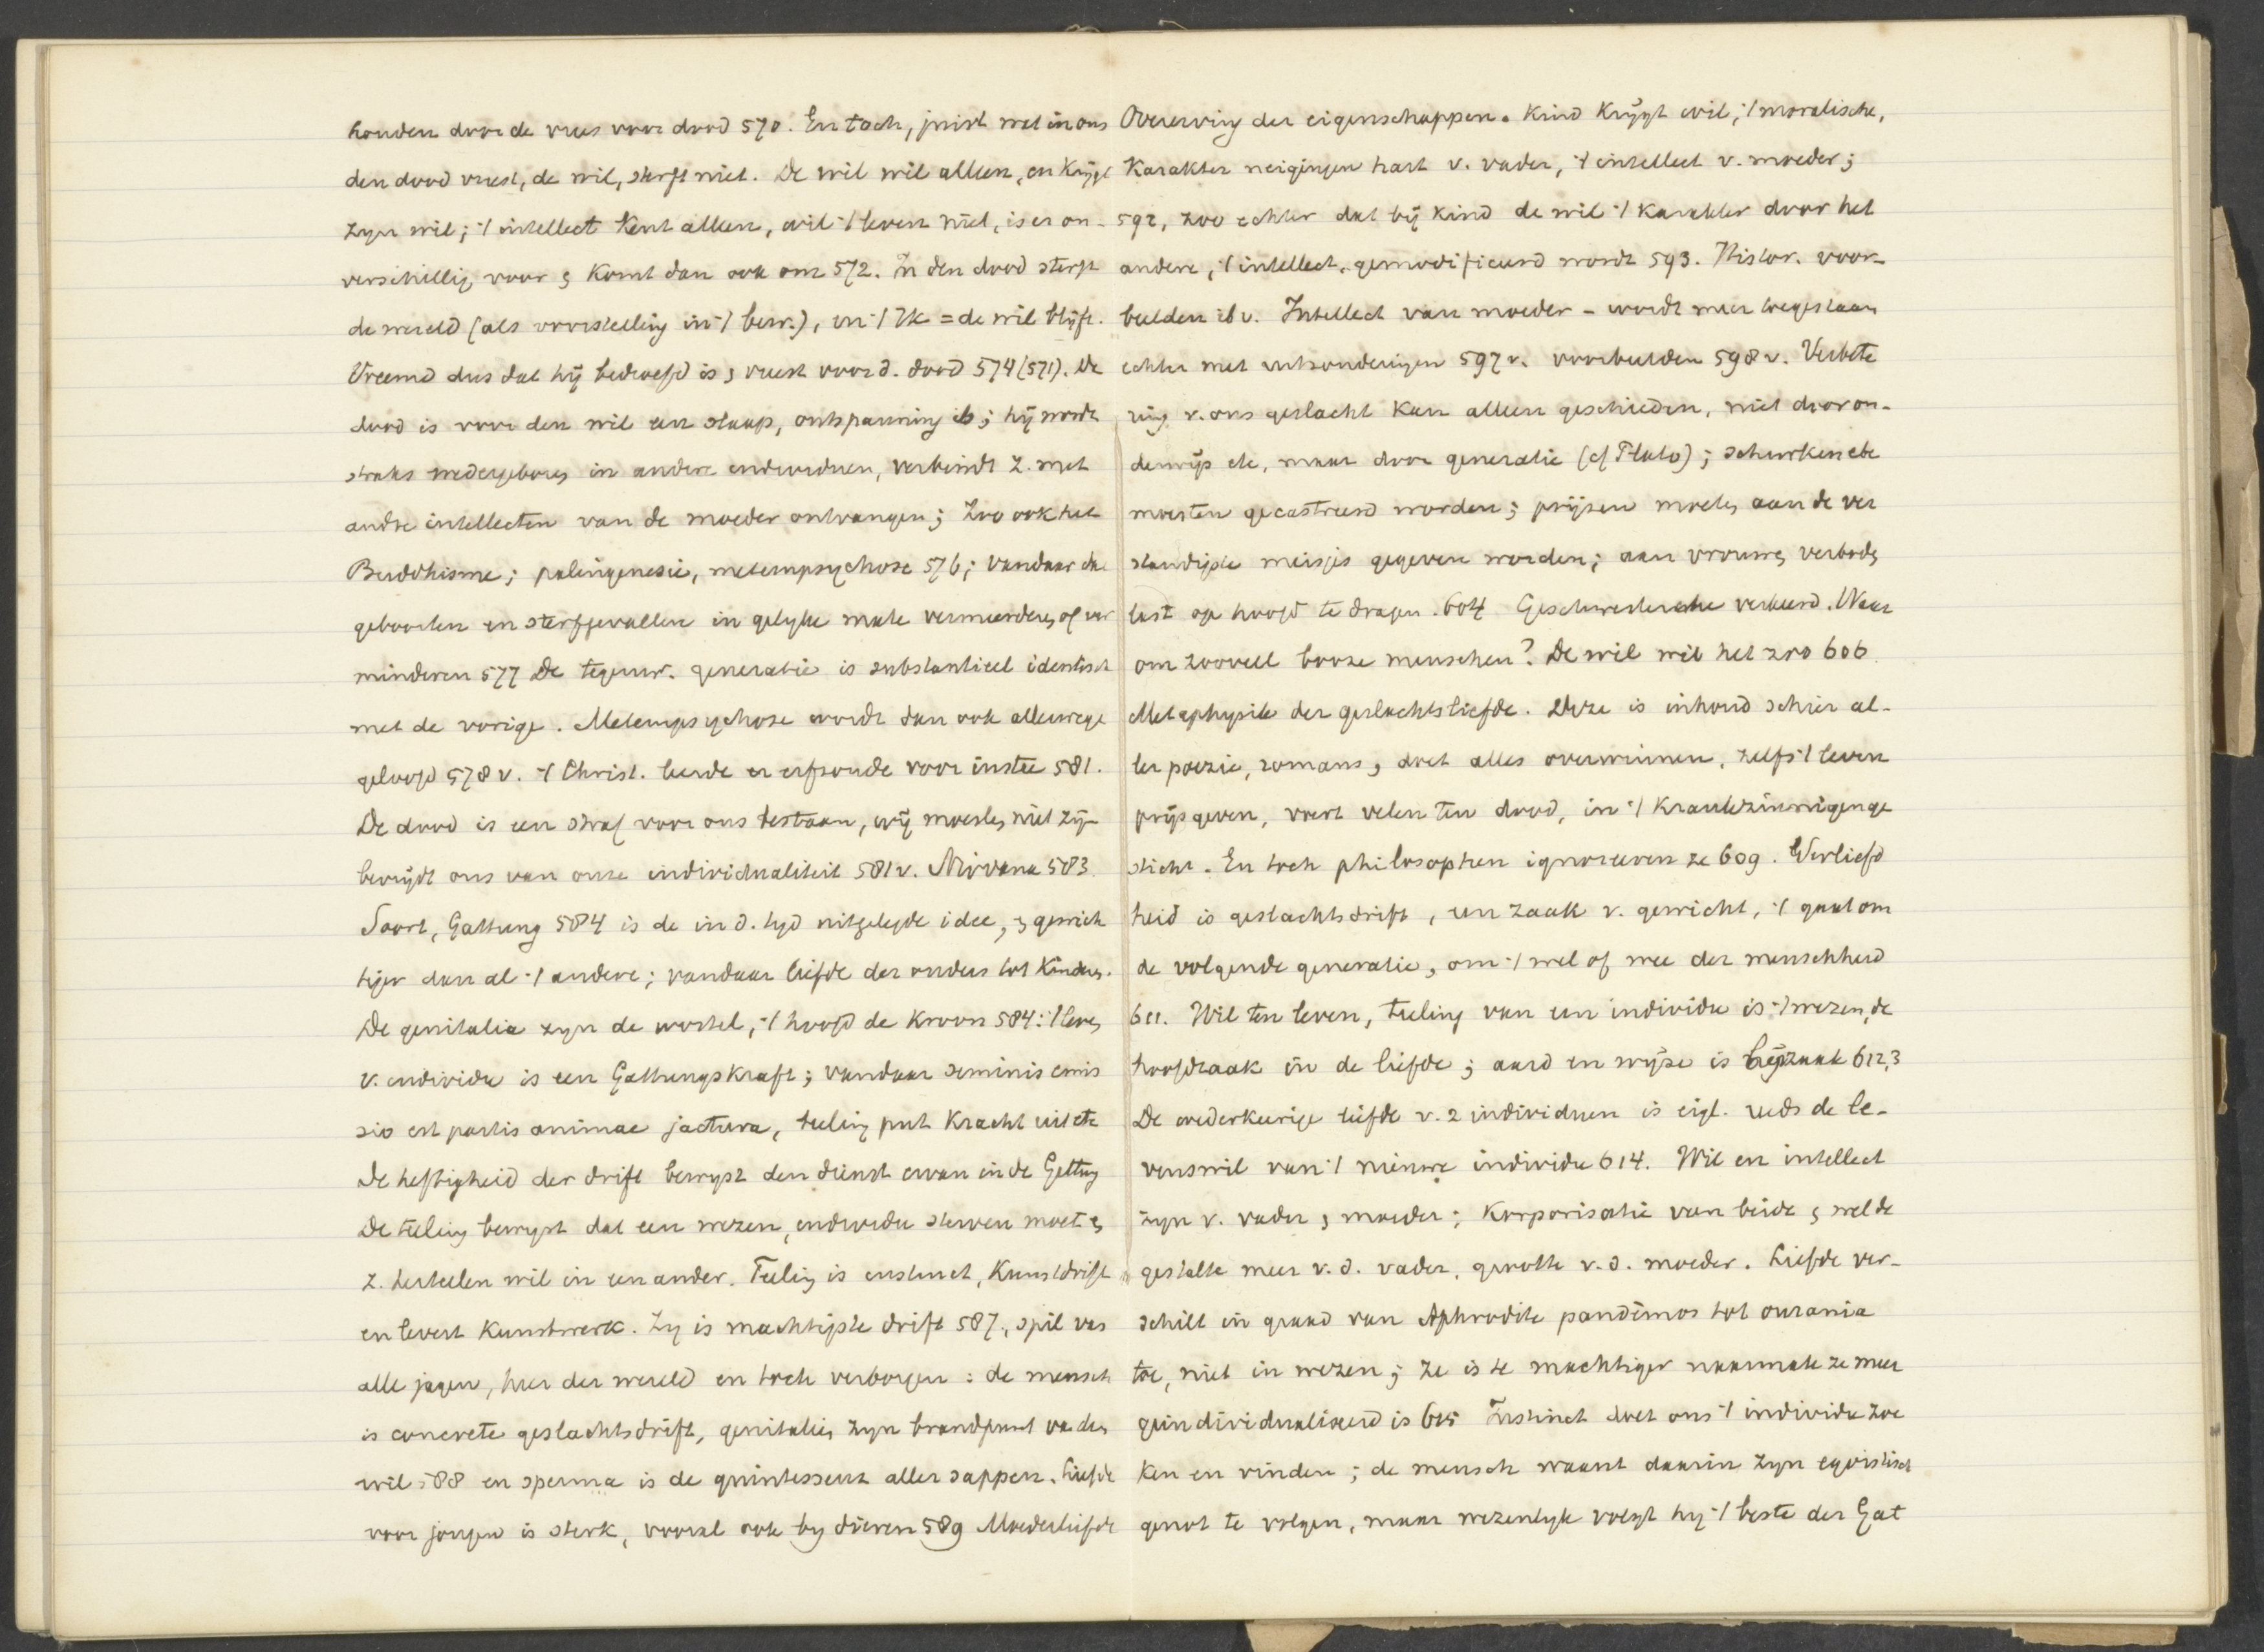 houden door de vrees voor dood 570. En toch, juist wat in ons
den dood vreest, de wil, sterft niet. De wil wil alleen, en krijgt
zyn wil; ·/ intellect kent alleen, wil ·/ leven niet, is er on-
verschillig voor & komt dan ook om 572. In den dood sterft
de wereld (als voorstelling in ·/ bew.), en ·/ Ik = de wil blijft.
Vreemd dus dat hij bedroefd is & vreest voor d. dood 574 (571). De
dood is voor den wil een slaap, ontspanning ib; hij wordt
straks wedergeboren in andere individuen, verbindt z. met
andre intellecten van de moeder ontvangen; Zoo ook het
Buddhisme; palingenesie, metempsychose 576; vandaar dat
geboorten en sterfgevallen in gelyke mate vermeerderen of ver
minderen 577 De tegenw. generatie is substantieel identisch
met de vorige. Metempsychose wordt dan ook allerwege
geloofd 578 v. ·/ Christ. leerde er erfzonde voor instee 581.
De dood is een straf voor ons bestaan, wij moesten niet zijn
bevrijdt ons van onze individualiteit 581 v. Nirvana 583.
Soort, Gattung 584 is de in d. tyd uitgelegde idee, & gewich
tiger dan al ·/ andere; vandaar liefde der ouders tot kinderen.
De genitalia zyn de wortel, ·/ hoofd de kroon 584: ·/ leven
v. individu is een Gattungskraft; vandaar seminis emis
sio est partis animae jactura, teeling put kracht uit etc
De heftigheid der drift bewyst den dienst ervan in de Gattung
De teeling bewyst dat een wezen, individu sterven moet &
z. herteelen wil in een ander. Teeling is instinct, kunstdrift
en levert kunstwerk. Zy is machtigste drift 587, spil van
alle jagen, heer der wereld en toch verborgen: de mensch
is concrete geslachtsdrift, genitalien zyn brandpunt van den
wil 588 en sperma is de quintessenz aller sappen. Liefde
voor jongen is sterk, vooral ook by dieren 589 Moederliefde
Overerving der eigenschappen. Kind krijgt wil, ·/ moralische,
karakter neigingen hart v. vader, ·/ intellect v. moeder;
592, zoo echter dat bij kind de wil ·/ karakter door het
andere, ·/ intellect, gemodificeerd wordt 593. Histor. voor-
beelden ib v. Intellect van moeder - wordt meer toegestaan
echter met uitzonderingen 597 v. voorbeelden 598 v. Verbete
ring v. ons geslacht kan alleen geschieden, niet door on-
derwijs etc, maar door generatie (cf Plato); schurken etc
moesten gecastreerd worden; prijzen moeten aan de ver
standigste meisjes gegeven worden; aan vrouwen verboden
last op hoofd te dragen. 604 Geschwisterehe verkeerd. Waar
om zooveel booze menschen? De wil wil het zoo 606.
Metaphysik der geslachtsliefde. Deze is inhoud schier al-
ler poezie, romans, doet alles overwinnen, zelfs ·/ leven
prijsgeven, voert velen ten dood, in ·/ krankzinnigenge
sticht. En toch philosophen ignoreeren ze 609. Verliefd
heid is geslachtsdrift, een zaak v. gewicht, ·/ gaat om
de volgende generatie, om ·/ wel of wee der menschheid
611. Wil ten leven, teeling van een individu is ·/ wezen, de
hoofdzaak in de liefde; aard en wijze is bijzaak 612,3
De wederkeerige liefde v. 2 individuen is eigl. reeds de le-
venswil van ·/ nieuwe individu 614. Wil en intellect
zyn v. vader & moeder; korporisatie van beide &
gestalte meer v. d. vader, grootte v. d. moeder. Liefde ver-
schilt in graad van Aphrodite pandèmos tot ourania
toe, niet in wezen; ze is te machtiger naarmate ze meer
geindividualiseerd is 615 Instinct doet ons ·/ individu zoe
ken en vinden; de mensch waant daarin zyn egoistisch
genot te volgen, maar wezenlyk volgt hij ·/ beste der Gat